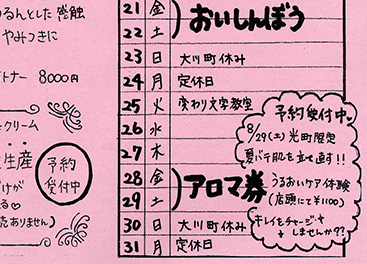 るんとした感触
やみつきに
トナー 8000円
クリーム
生産
予約
受付中
だけが
る♡
売ありません)
21 金
22 土
おいしんぼう
23 日 大川町休み
24 月 定休日
25 火 変わり文字教室
26 水
27 木
28 金
29 土
アロマ券
30 日 大川町休み
31 月 定休日
予約受付中♥
8/29(土)光町限定
夏バテ肌を立て直す!!
うるおいケア体験
(店頭にて¥1100)
キレイをチャージ
しませんか??